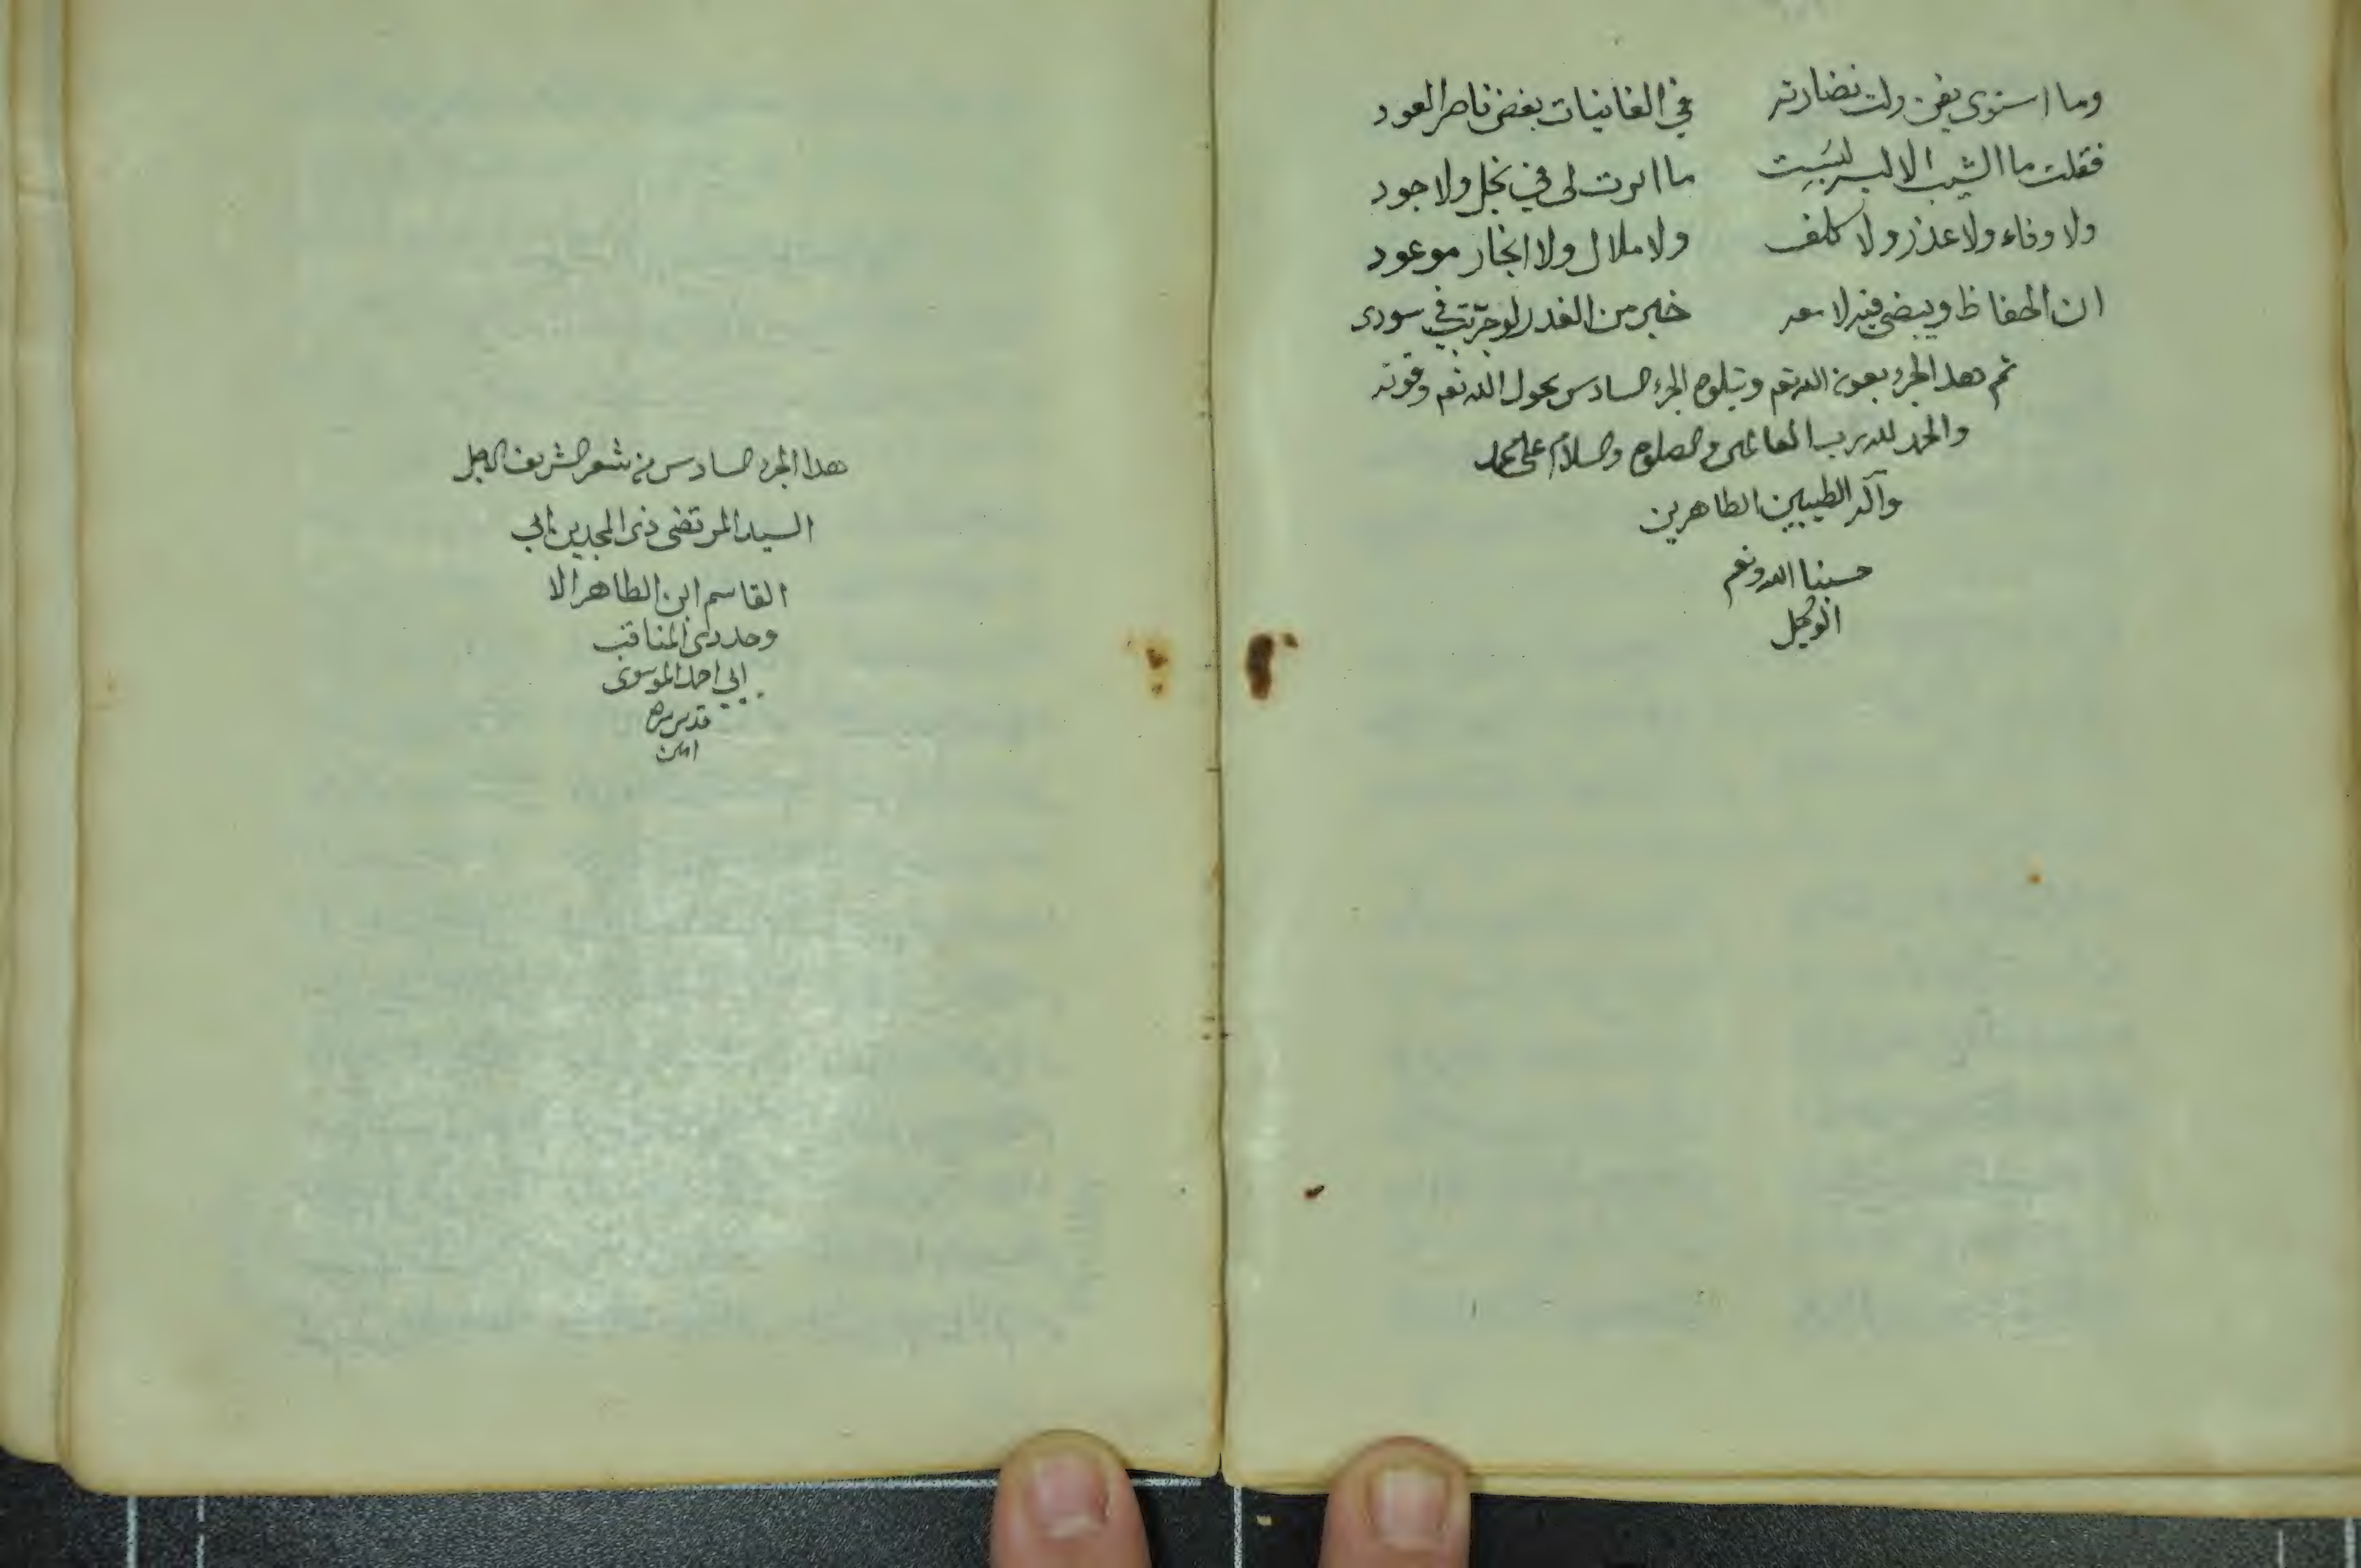 وما استوى يفن ولت نضارته في الغانيات بغض ناضر العود
فقلت ما الشيب الا لبسة لبست ما اثرت لى في بخل ولا جود
ولا وفاء ولا غدر ولا كلف ولا ملال ولا انجاز موعود
ان الحفاظ وبيضى فيه لامعه خير من الغدر لو جربت في سودى
تم هدا الجزء بعون الله تعم ويتلوه الجزء السادس بحول الله تعم وقوته
والحمد لله رب العالمين والصلوة والسلام على محمد
وآله الطيبين الطاهرين
حسبنا الله ونعم
الوكيل
هدا الجزء السادس من شعر الشريف الاجل
السيد المرتضى ذى المجدين ابي
القاسم ابن الطاهر الا
وحد ذى المناقب
ابي احمد الموسوى
قدس سره
امين